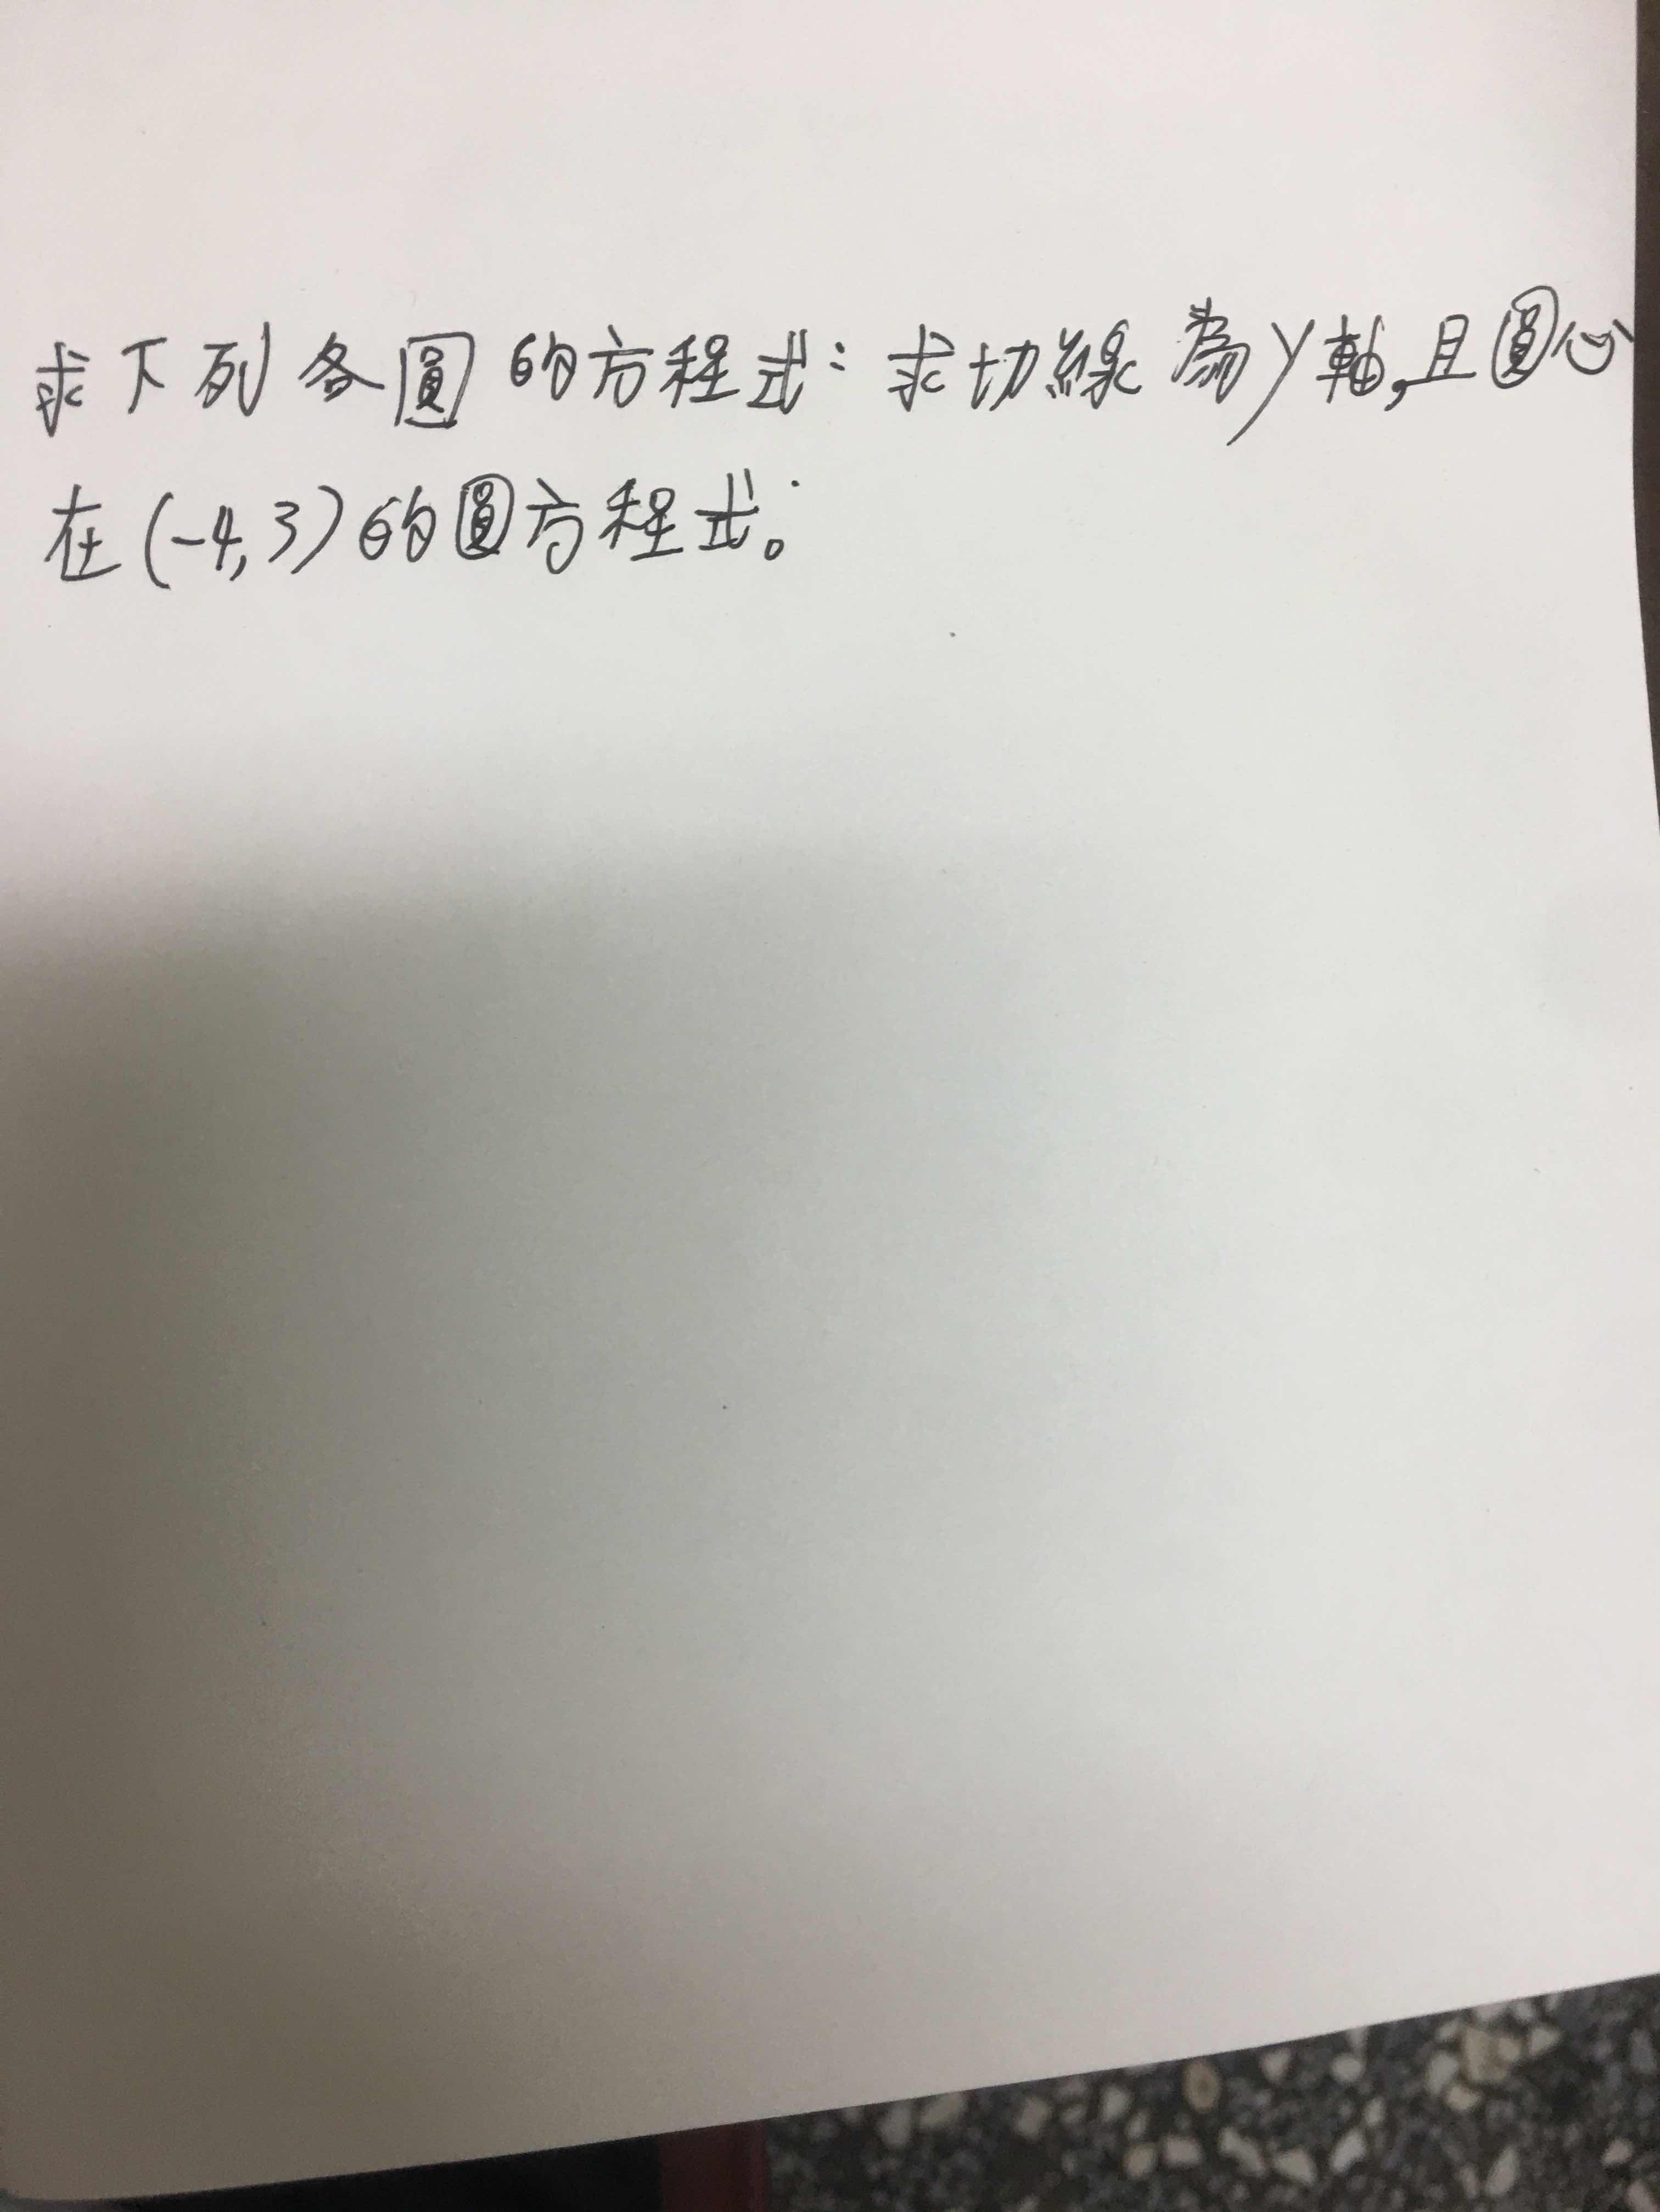 求下列各圓的方程式：求切線為y軸,且圓心
在(-4,3)的圓方程式。